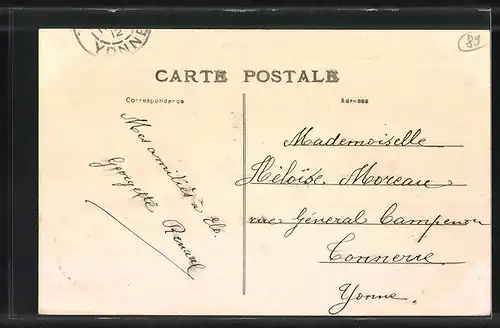 12
YONNE
89
CARTE POSTALE
Correspondance
Adresse
Mes amitiés à
Georgette Renard
Mademoiselle
Héloïse Moreau
rue Général Campenon
Tonnerre
Yonne.